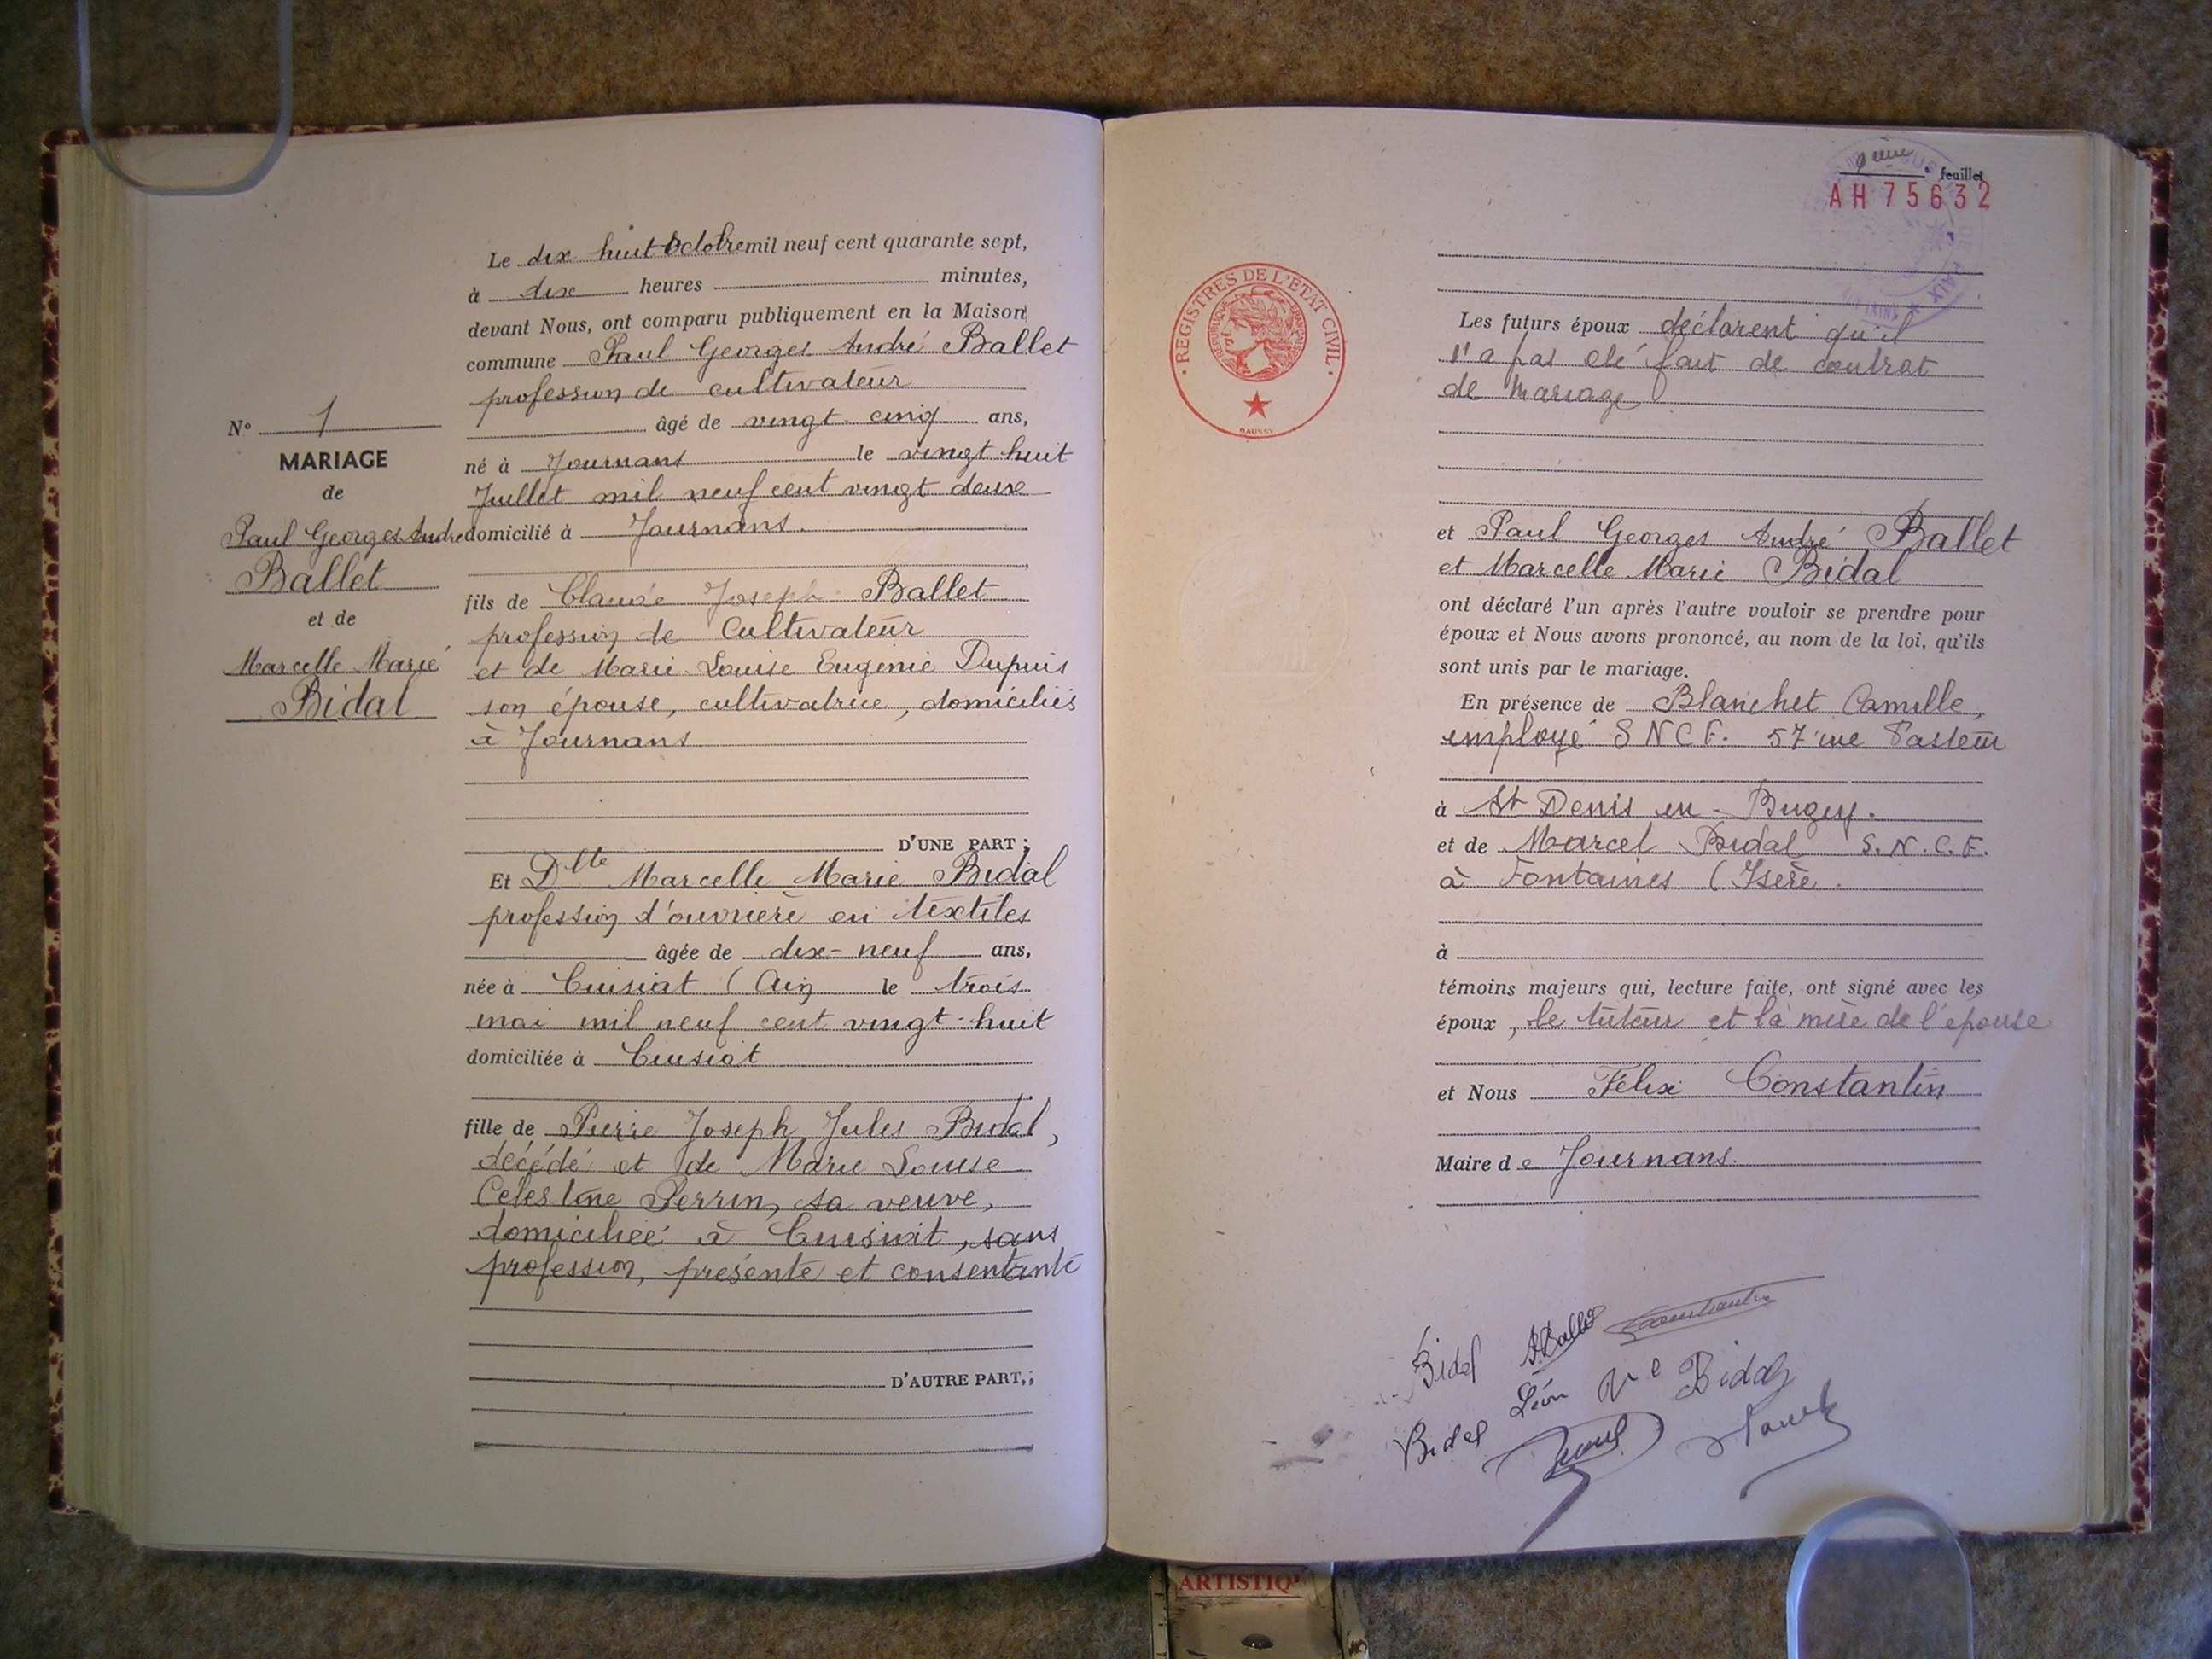 Le dix huit Octobre mil neuf cent quarante sept,
à dix heures minutes,
devant Nous, ont comparu publiquement en la Maison
commune Paul Georges André Ballet
profession de cultivateur
âgé de vingt cinq ans,
né à Journans le vingt huit
Juillet mil neuf cent vingt deux
domicilié à Journans.
fils de Claude Joseph Ballet
profession de Cultivateur
et de Marie Louise Eugénie Dupuis
son épouse, cultivatrice, domiciliés
à Journans
D'UNE PART ;
Et Dlle Marcelle Marie Bidal
profession d'ouvrière en textiles
âgée de dix-neuf ans,
née à Cuisiat (Ain le trois
mai mil neuf cent vingt-huit
domiciliée à Cuisiat
fille de Pierre Joseph Jules Bidal,
décédé et de Marie Louise
Celestine Perrin, sa veuve,
domiciliée à Cuisiat, sans
profession, présente et consentante
D'AUTRE PART, ;
N° 1
MARIAGE
de
Paul Georges André
Ballet
et de
Marcelle Marie
Bidal
feuillet
AH 75632
REGISTRES DE L'ÉTAT CIVIL
REPUBLIQUE FRANÇAISE
Les futurs époux déclarent qu'il
n'a pas été fait de contrat
de mariage
et Paul Georges André Ballet
et Marcelle Marie Bidal
ont déclaré l'un après l'autre vouloir se prendre pour
époux et Nous avons prononcé, au nom de la loi, qu'ils
sont unis par le mariage.
En présence de Blanchet Camille,
employé SNCF. 57 rue Pasteur
à St Denis en-Bugey.
et de Marcel Bidal S.N.C.F.
à Fontaines (Isère.
à
témoins majeurs qui, lecture faite, ont signé avec les
époux, le tuteur et la mère de l'épouse
et Nous Félix Constantin
Maire de Journans.
Bidal P.Ballet Constantin
Bidal Léon Ve Bidal
ARTISTIQ